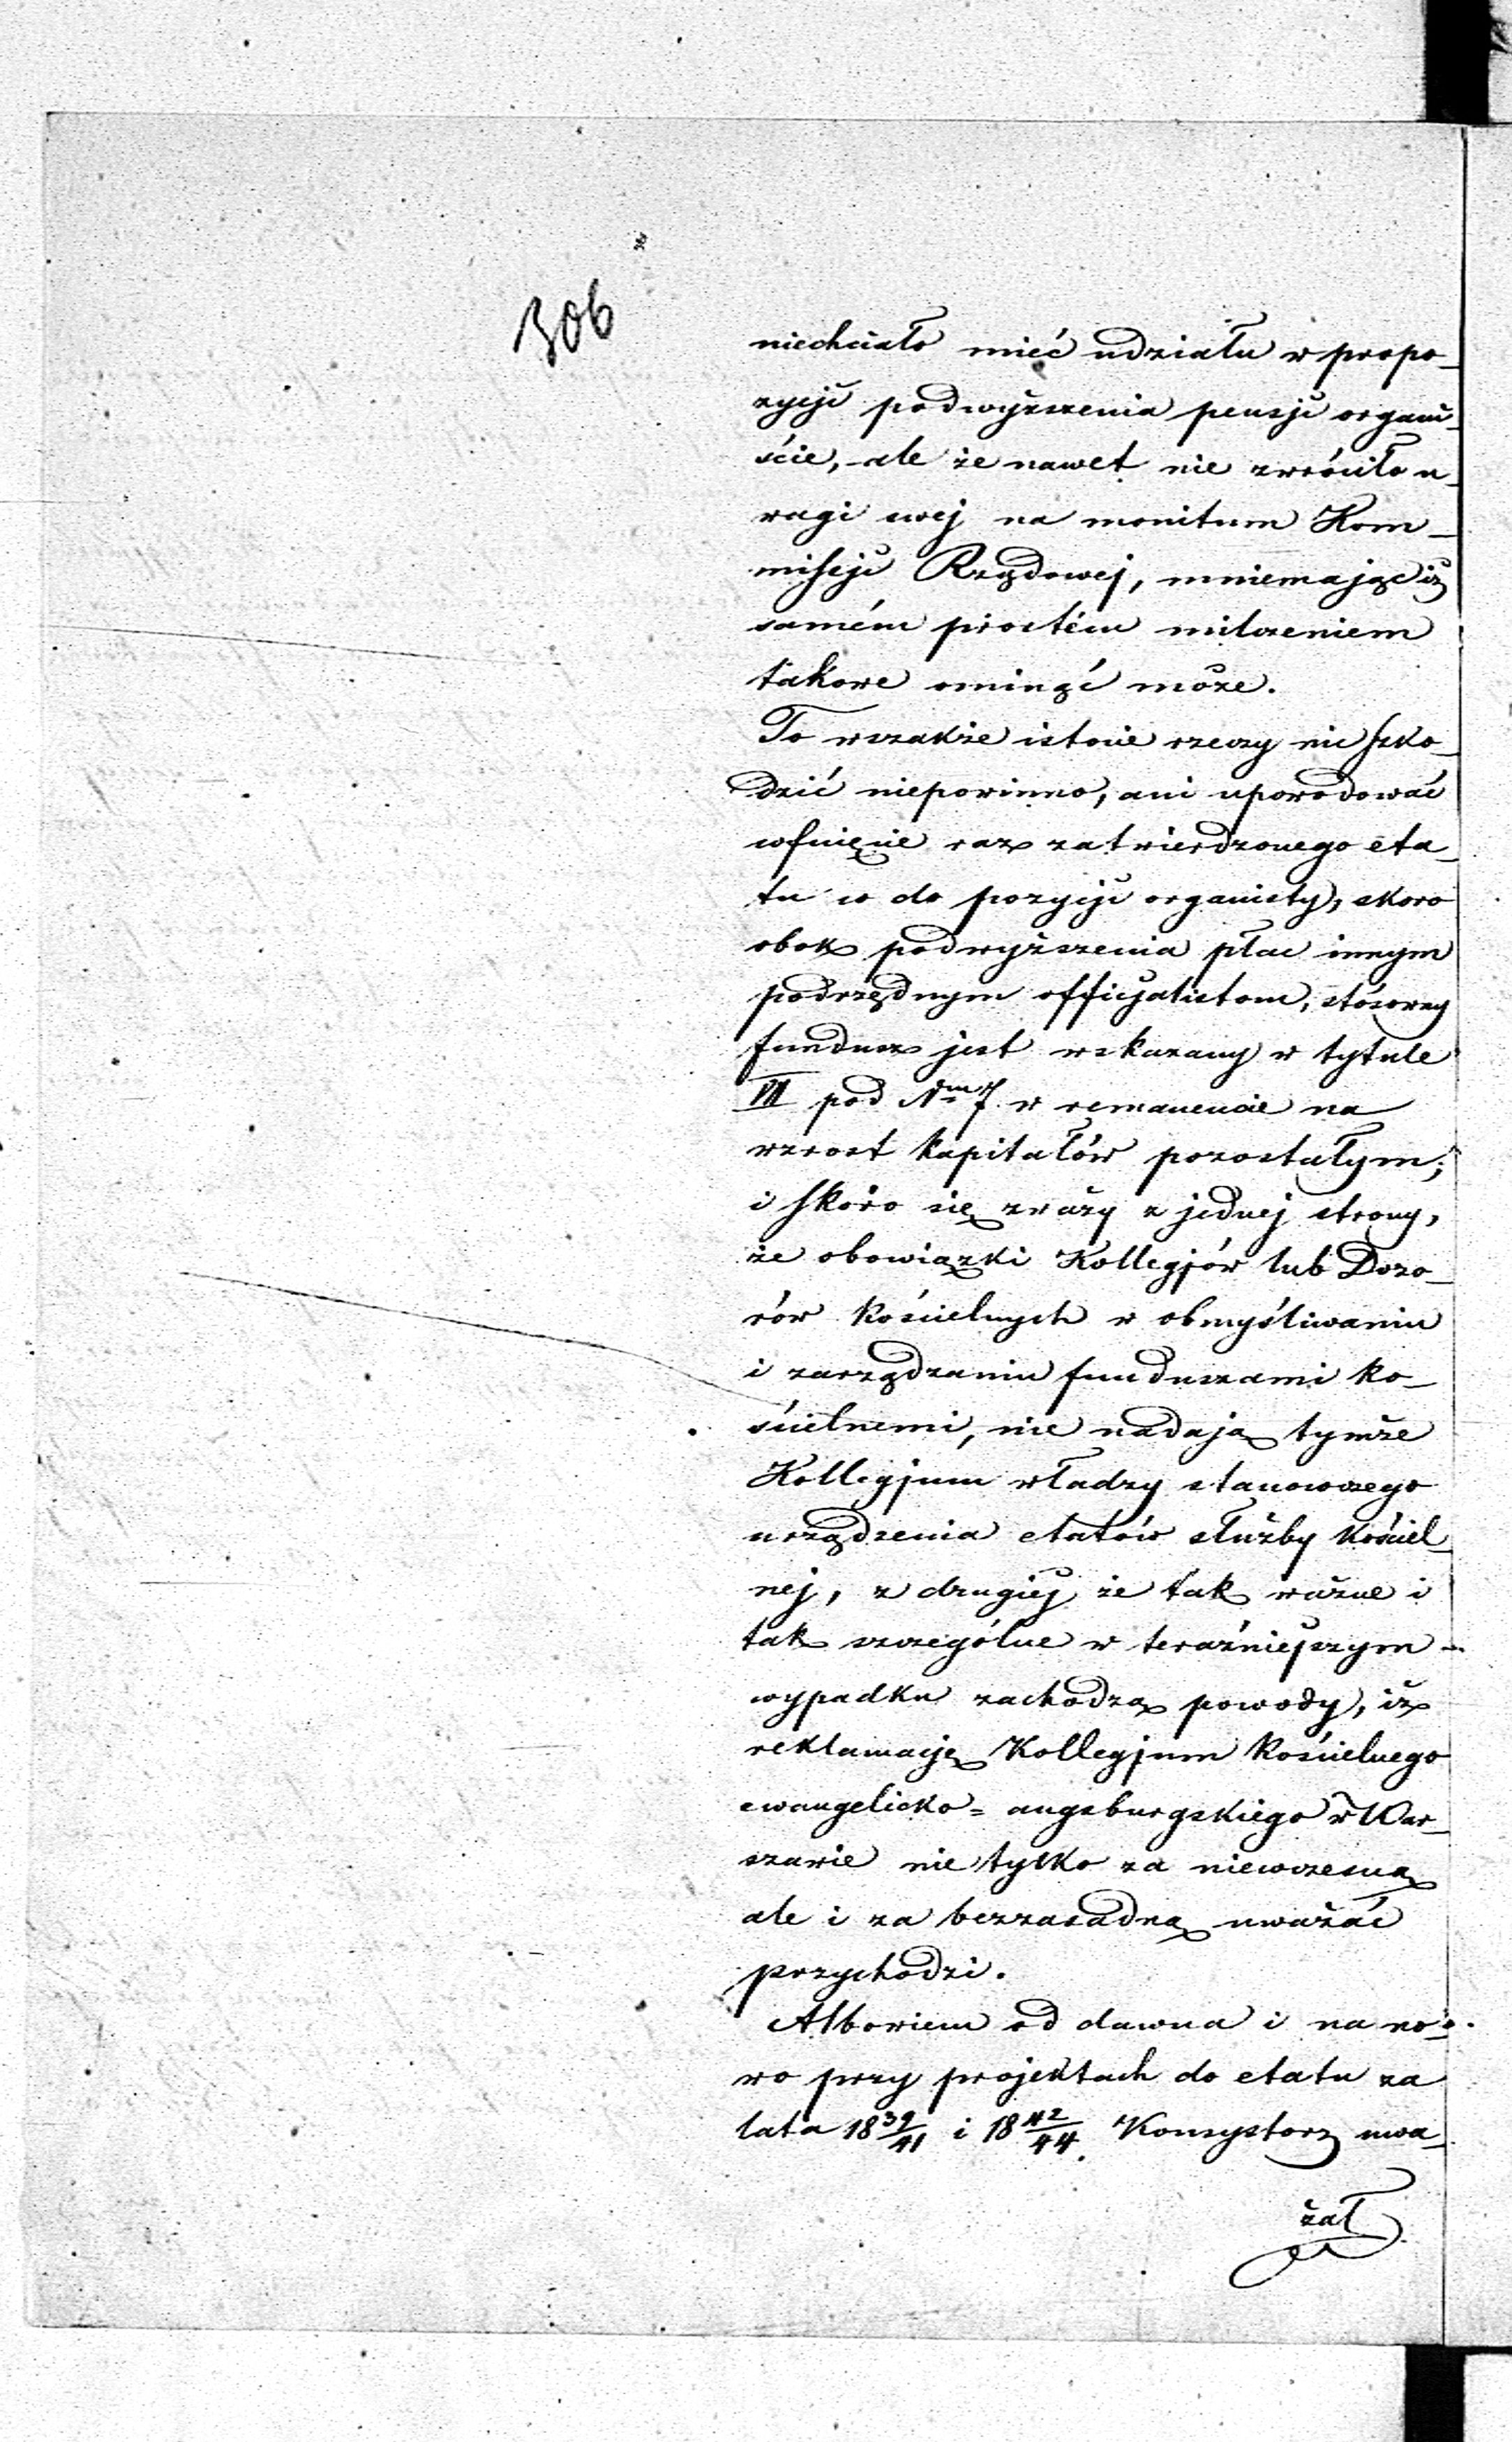 306
niechciało mieć udziału w propo_
zycji podwyższenia pensji organi_
ście, ale że nawet nie zwróciło u_
wagi swej na monitum Kom_
missji Rządowej, mniemając iż
samém prostém milczeniem
takowe ominąć może.
To wszakże istocie rzeczy nic szko_
dzić niepowinno, ani upowodować
cofnięcie raz zatwierdzonego eta_
tu co do pozycji organisty, skoro
obok podwyższenia płac innym
podrzędnym officjalistom, stósowny
fundusz jest wskazany w tytule
VII pod Nrm 7 w remanencie na
wzrost kapitałów pozostałym;
i skóro się zważy z jednej strony,
że obowiązki Kollegjów lub Dozo_
rów kościelnych w obmyśliwaniu
i zarządzaniu funduszami ko_
ścielnemi, nie nadają tymże
Kollegjum władzy stanowczego
urządzenia etatów służby kościel_
nej, z drugiej że tak ważne i
tak szczególne w teraźniejszym
wypadku zachodzą powody, iż
reklamację Kollegjum kościelnego
ewangelicko=augsburgskiego w War_
szawie nie tylko za niewczesną
ale i za bezzasadną uważać
przychodzi.
Albowiem od dawna i na no_
wo przy projektach do etatu za
lata 18 39/41 i 18 42/44. Konsystorz uwa_
żał